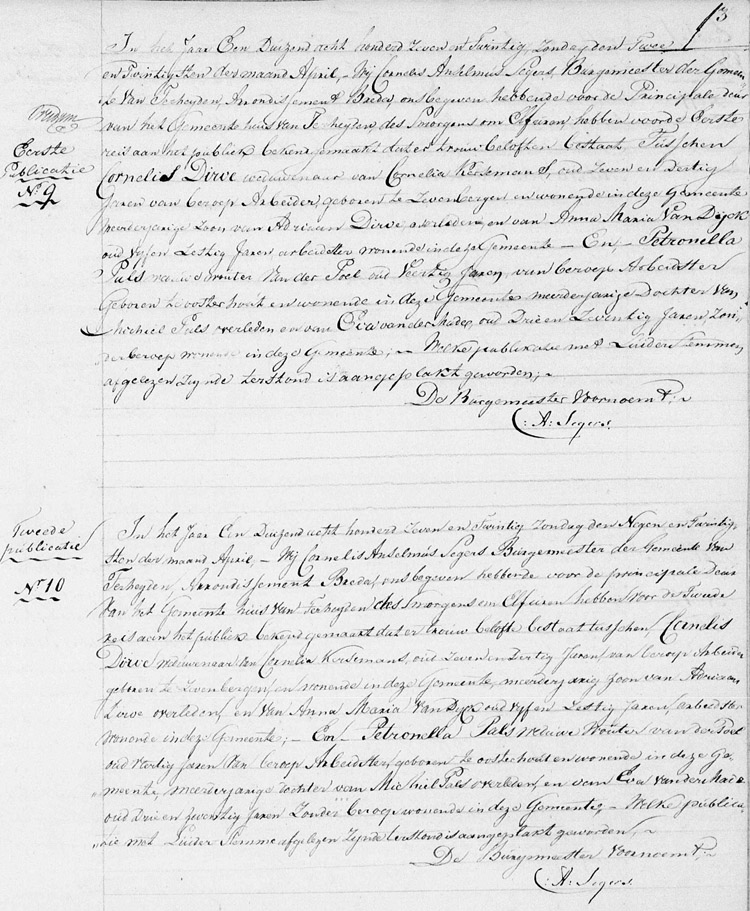 13
In het Jaar Een Duizend acht honderd Zeven en Twintig, Zondag den Twee
en Twintigsten der maand April, – Wij Cornelis Anselmus Segers, Burgemeester der Gemeen
te Van Terheyden, Arrondissement Breda, ons begeven hebbende voor de Principale deur
van het Gemeente huis van Terheyden, des Smorgens om Elf uren, hebben voor de Eerste
reis aan het publiek bekend gemaakt dat er trouw beloften bestaat Tusschen
Eerste
Publicatie
N° 9
Cornelis Dirve weduwenaar van Cornelia Kerstmans, oud Zeven en Dertig
Jaren van beroep Arbeider, geboren te Zevenbergen en wonende in deze Gemeente
meerderjarige Zoon van Adriaan Dirve, overleden, en van Anna Maria Van Dijck
oud Vyf en Zestig Jaren, arbeidster wonende in deze Gemeente – En, – Petronella
Pals weduwe Wouter Van der Poel oud Veertig Jaren, van beroep Arbeidster
Geboren te oosterhout en wonende in deze Gemeente meerderjarige Dochter Van
Michiel Pals overleden en van Eva van der Made, oud Drie en Zeventig Jaren, Zon
der beroep wonende in deze Gemeente; – Welke publikatie met Luider Stemmen
afgelezen Zynde terstond is aangeplakt geworden; –
De Burgemeester Voornoemt; –
C: A: Segers.
Tweede
publicatie
N° 10
In het Jaar Een Duizend acht honderd Zeven en Twintig Zondag den Negen en Twintig
sten der maand April, – Wij Cornelis Anselmus Segers Burgemeester der Gemeente Van
Terheyden, Arrondissement Breda, ons begeven hebbende voor de principale Deur
Van het Gemeente huis Van Terheyden des Smorgens om Elf uren hebben voor de Tweede
reis aan het publiek bekend gemaakt dat er trouw belofte bestaat tusschen, Cornelis
Dirve weduwenaar van Cornelia Kerstmans, oud Zeven en Dertig Jaren, van beroep Arbeider
geboren te Zevenbergen, en wonende in deze Gemeente, meerderjarig Zoon van Adriaan
Dirve overleden, en van Anna Maria Van Dijck oud vyf en Zestig Jaren, arbeidster
wonende in deze Gemeente; – En – Petronella Pals weduwe Wouter van der Poel
oud veertig Jaren Van beroep Arbeidster, geboren te oosterhout en wonende in deze Ge
meente, meerderjarige dochter van Michiel Pals overleden, en van Eva van der Made
oud Drie en Zeventig Jaren Zonder beroep wonende in deze Gemeente, – Welke publica
tie met Luider Stemme afgelezen Zynde terstond is aangeplakt geworden, –
De Burgemeester Voornoemt; –
C: A: Segers.